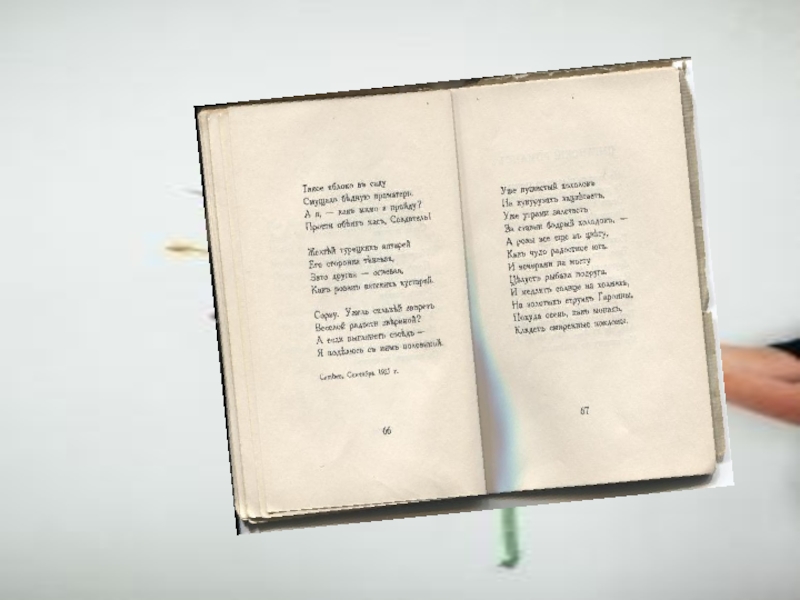 Такое яблоко въ саду
Смущало бѣдную праматерь.
А я, — какъ мимо я пройду?
Прости обѣихъ насъ, Создатель!
Желтѣй турецкихъ янтарей
Его сторонка тѣневая,
Зато другая — огневая,
Какъ розанъ вятскихъ кустарей.
Сорву. Ужель сильнѣй запретъ
Веселой радости звѣриной?
А если выглянетъ сосѣдъ —
Я подѣлюсь съ нимъ половиной.
Сентябрь 1915 г.
66
Уже пушистый хохолокъ
На кукурузѣ
Уже утрами
За ставни бодрый холодокъ, —
А розы все еще въ цвѣту,
Какъ чудо радостное юга.
И вечерами на мосту
Цѣлуетъ рыбака подруга,
И медлитъ солнце на холмахъ,
На золотыхъ струяхъ Гаронны,
Покуда осень, какъ монахъ,
Кладетъ смиренные поклоны.
67